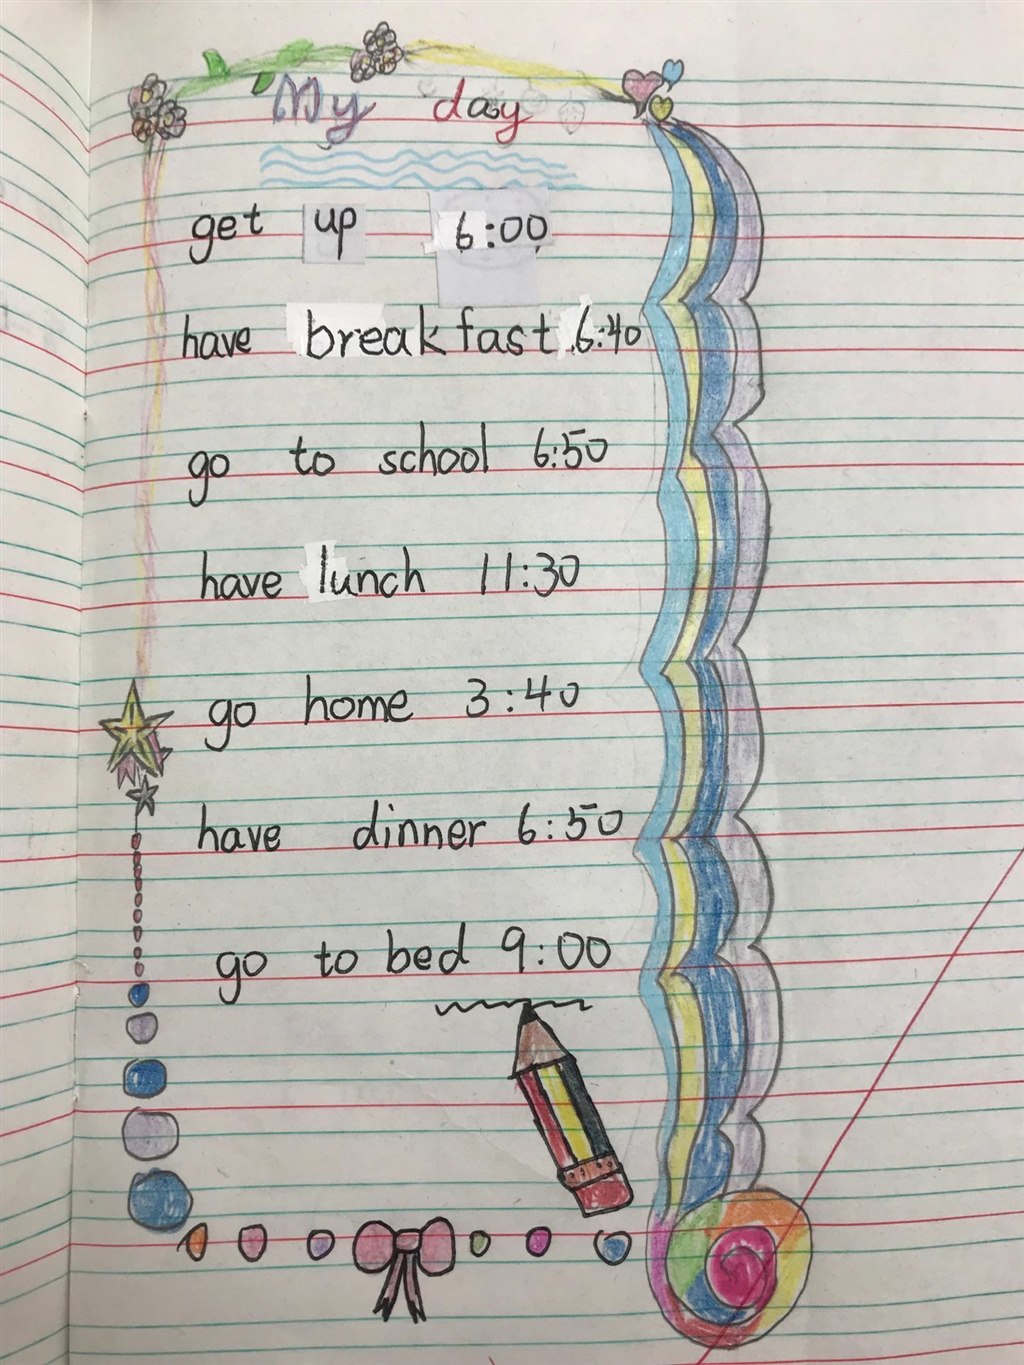 My day
get up 6:00
have breakfast 6:40
go to school 6:50
have lunch 11:30
go home 3:40
have dinner 6:50
go to bed 9:00